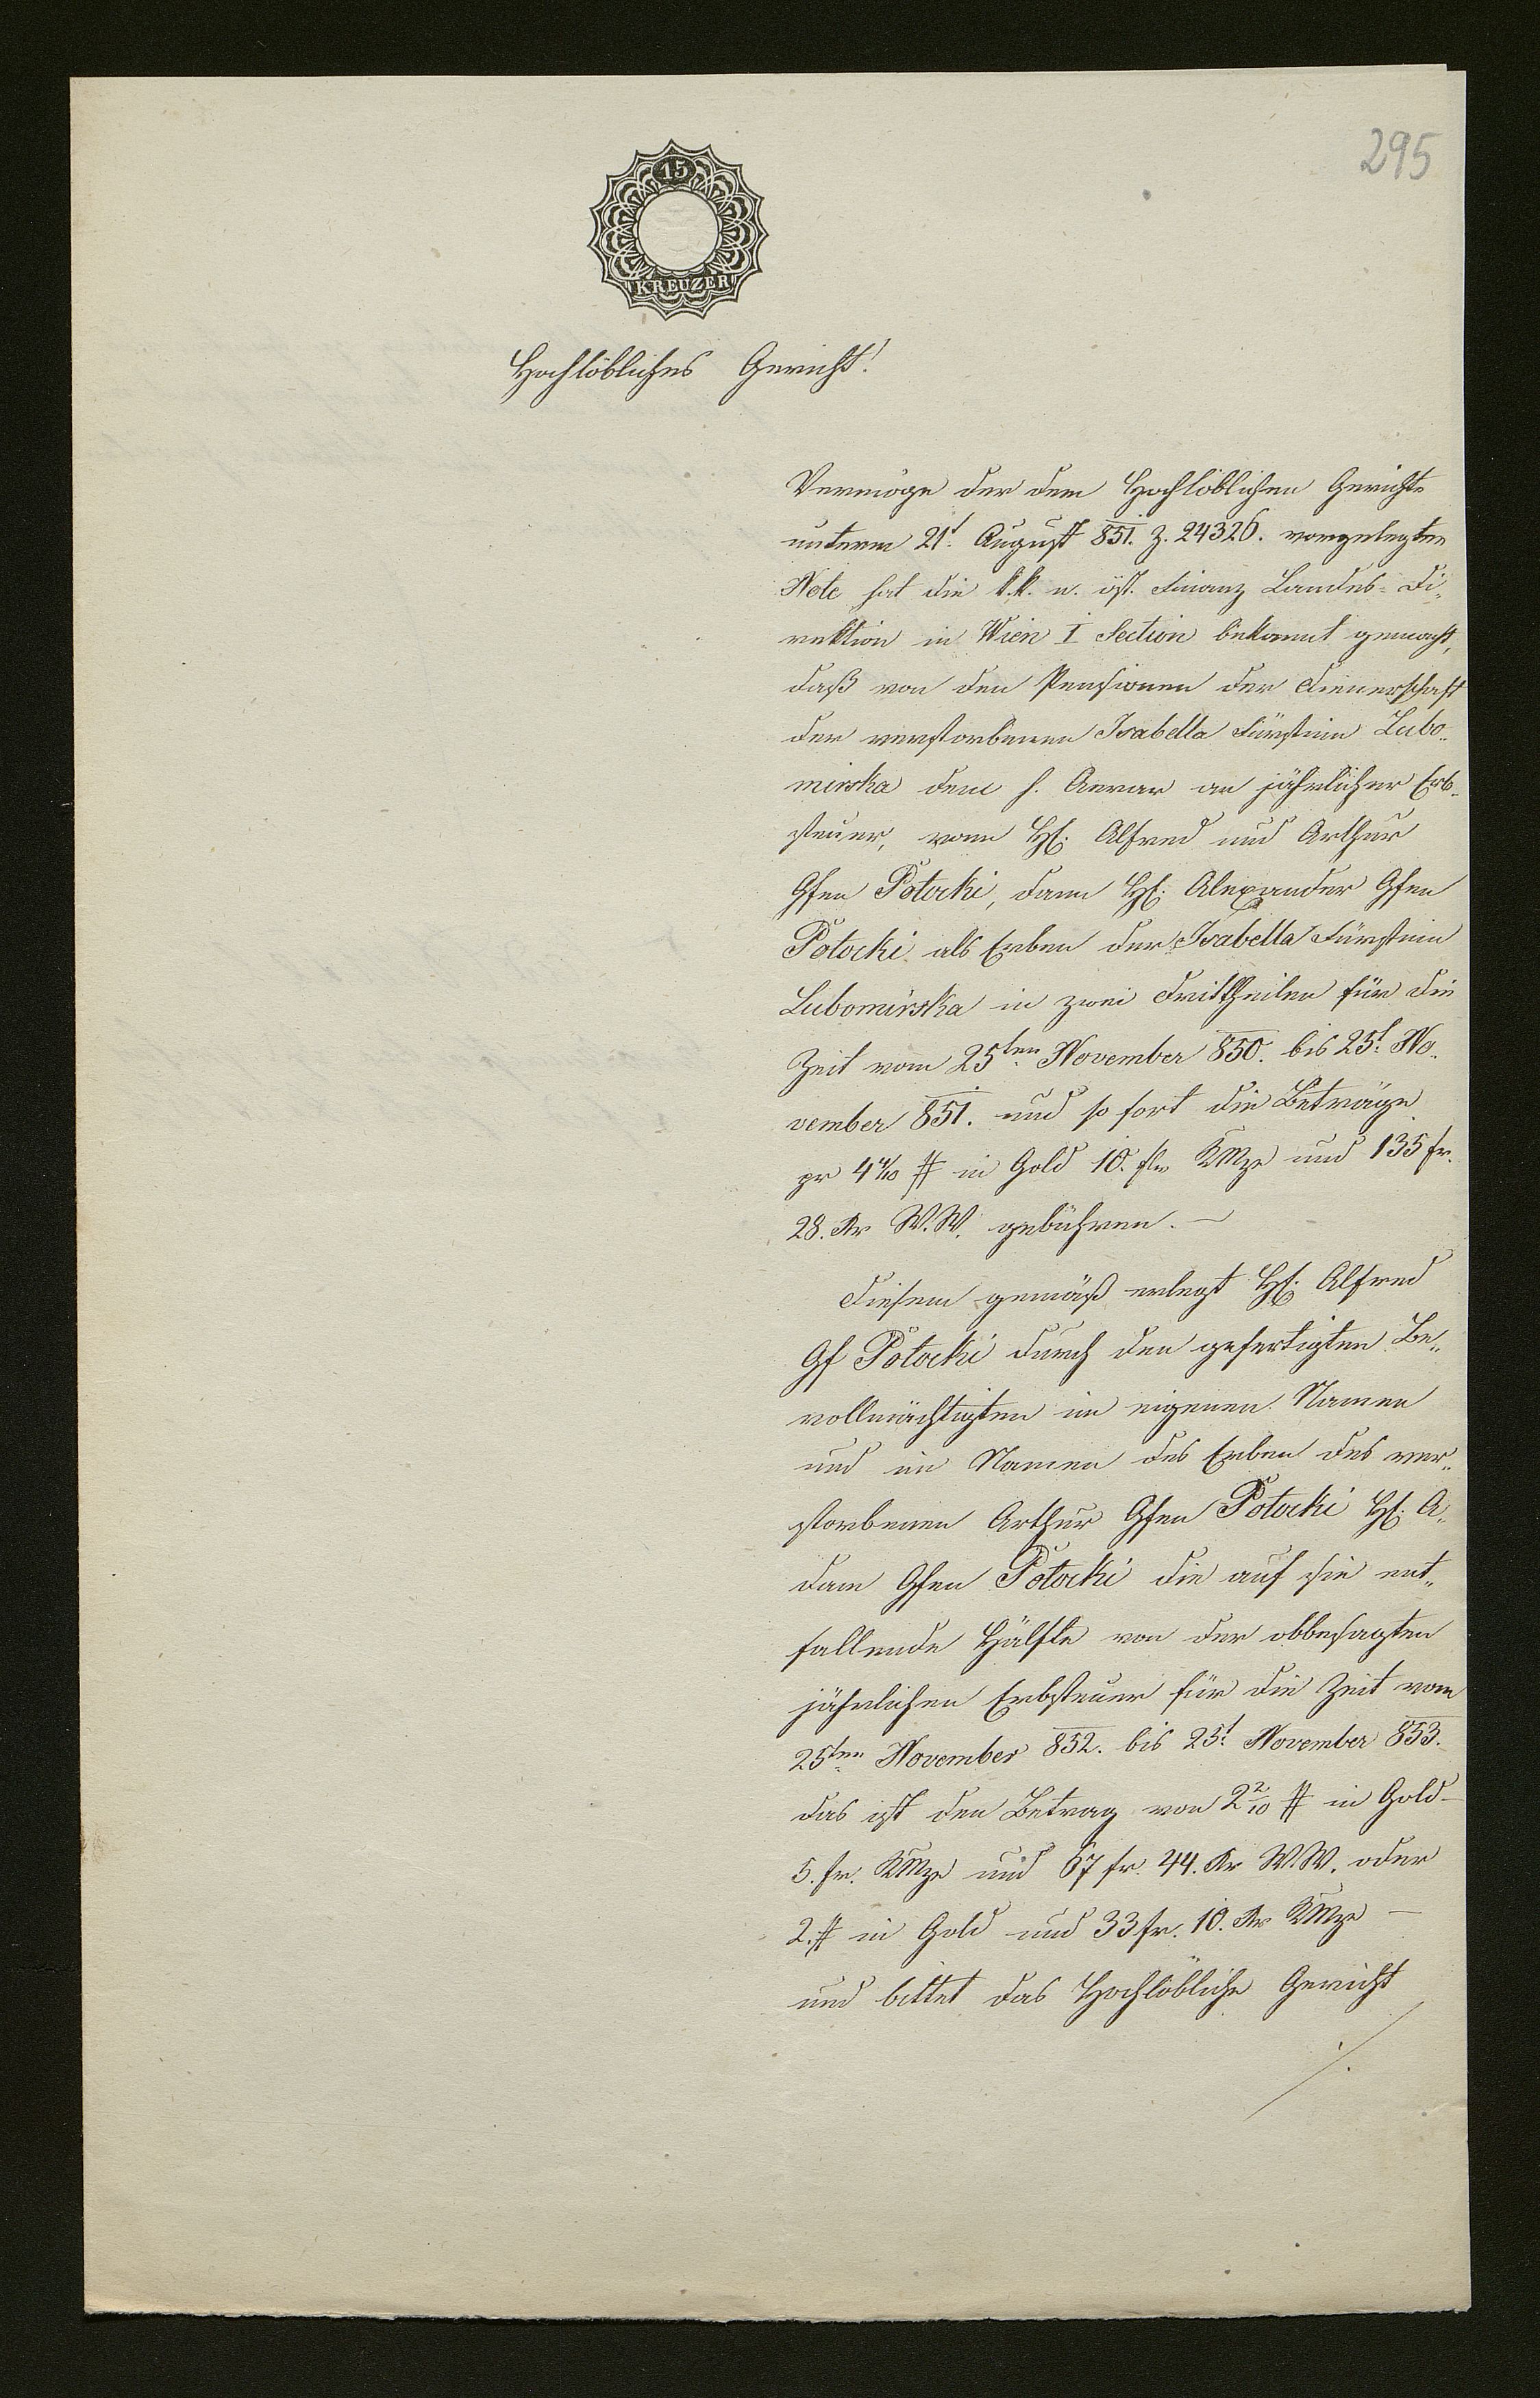 295
15
KREUZER
Hochlöbliches Gericht!
Vermöge der dem Hochlöblichen Gerichte
unterm 21t August 851. Z. 24326. vorgelegten
Note hat die k.k. n. öst. Finanz Landes-Di„
rektion in Wien I Section bekannt gemacht,
daß von den Pensionen der Dienerschaft
der verstorbenen Isabella Fürstin Lubo„
mirska dem h. Aerar an jährlicher Erb„
steuer, vom H: Alfred und Arthur
Gfen Potocki, dann H: Alexander Gfen
Potocki als Erben der Isabella Fürstin
Lubomirska in zwei Drittheilen für die
Zeit vom 25ten November 850. bis 25t No„
vember 851. und so fort die Beträge
pr 4 4/10 # in Gold 10. fr KMze und 135 fr.
28. Kr W.W. gebühren. —
Diesem gemäß erlegt H: Alfred
Gf Potocki durch den gefertigten Be„
vollmächtigten im eigenen Namen
und im Namen des Erben des ver„
storbenen Arthur Gfen Potocki H: A„
dam Gfen Potocki die auf sie ent„
fallende Hälfte von der obbesagten
jährlichen Erbsteuer für die Zeit vom
25ten November 852. bis 25t November 853.
das ist den Betrag von 2 2/10 # in Gold
5. fr. KMze und 67 fr. 44. Kr W.W. oder
2. # in Gold und 33 fr. 10. Kr KMze —
und bittet das Hochlöbliche Gericht
./.